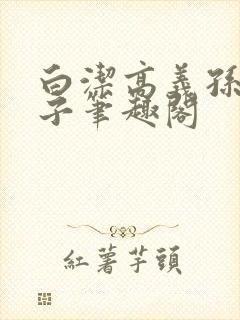 白潔高義孫
子筆趣閣
紅薯芋頭